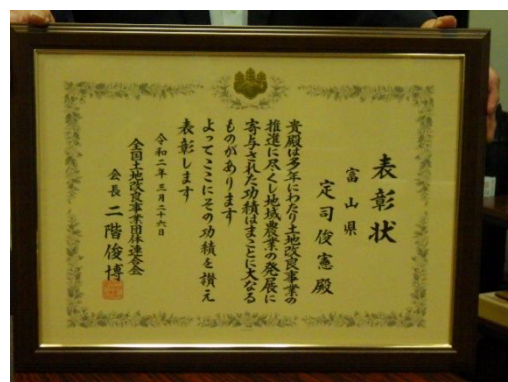 表彰状
富山県
定司俊憲殿
貴殿は多年にわたり土地改良事業の
推進に尽くし地域農業の発展に
寄与された功績はまことに大なる
ものがあります
よってここにその功績を讃え
表彰します
令和二年三月二十六日
全国土地改良事業団体連合会
会長 二階俊博